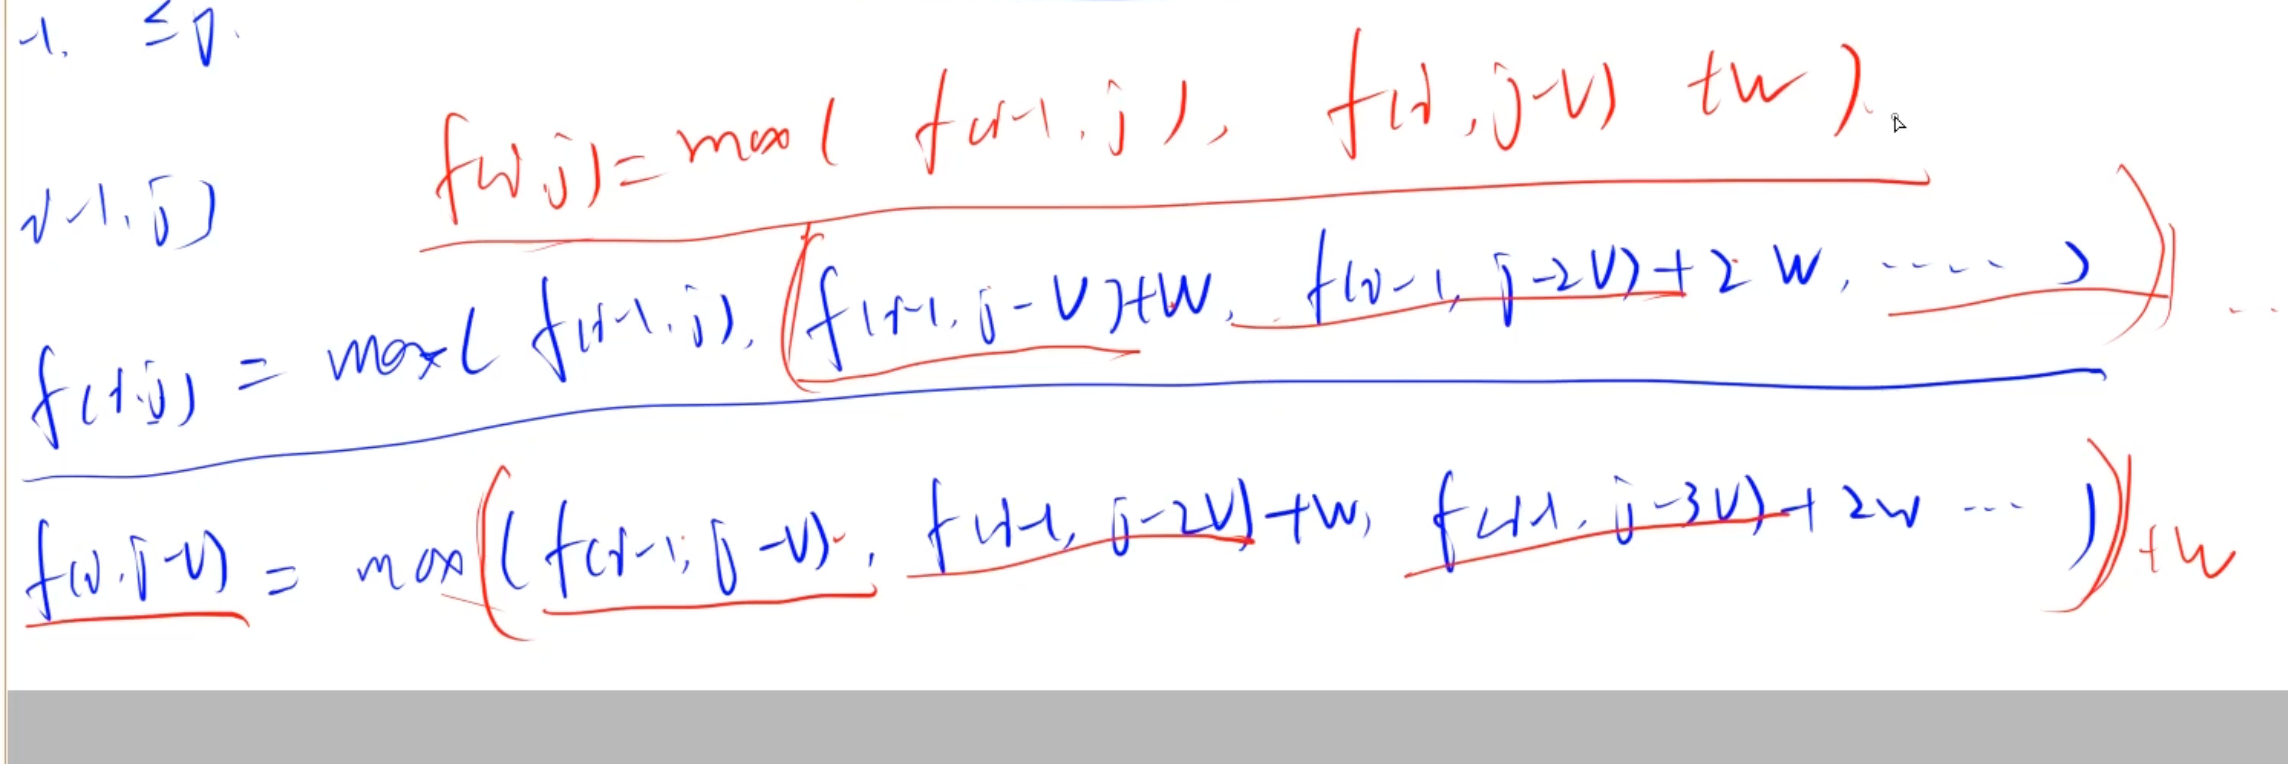 -1. ≤ j.
f(i,j)=max( f(i-1,j), f(i,j-v) +w ).
i-1,j)
f(i,j) = max( f(i-1,j), (f(i-1,j-v)+w, f(i-1,j-2v)+2w, ..... ))
...
f(i,j-v) = max((f(i-1,j-v), f(i-1,j-2v)+w, f(i-1,j-3v)+2w ... ))+w